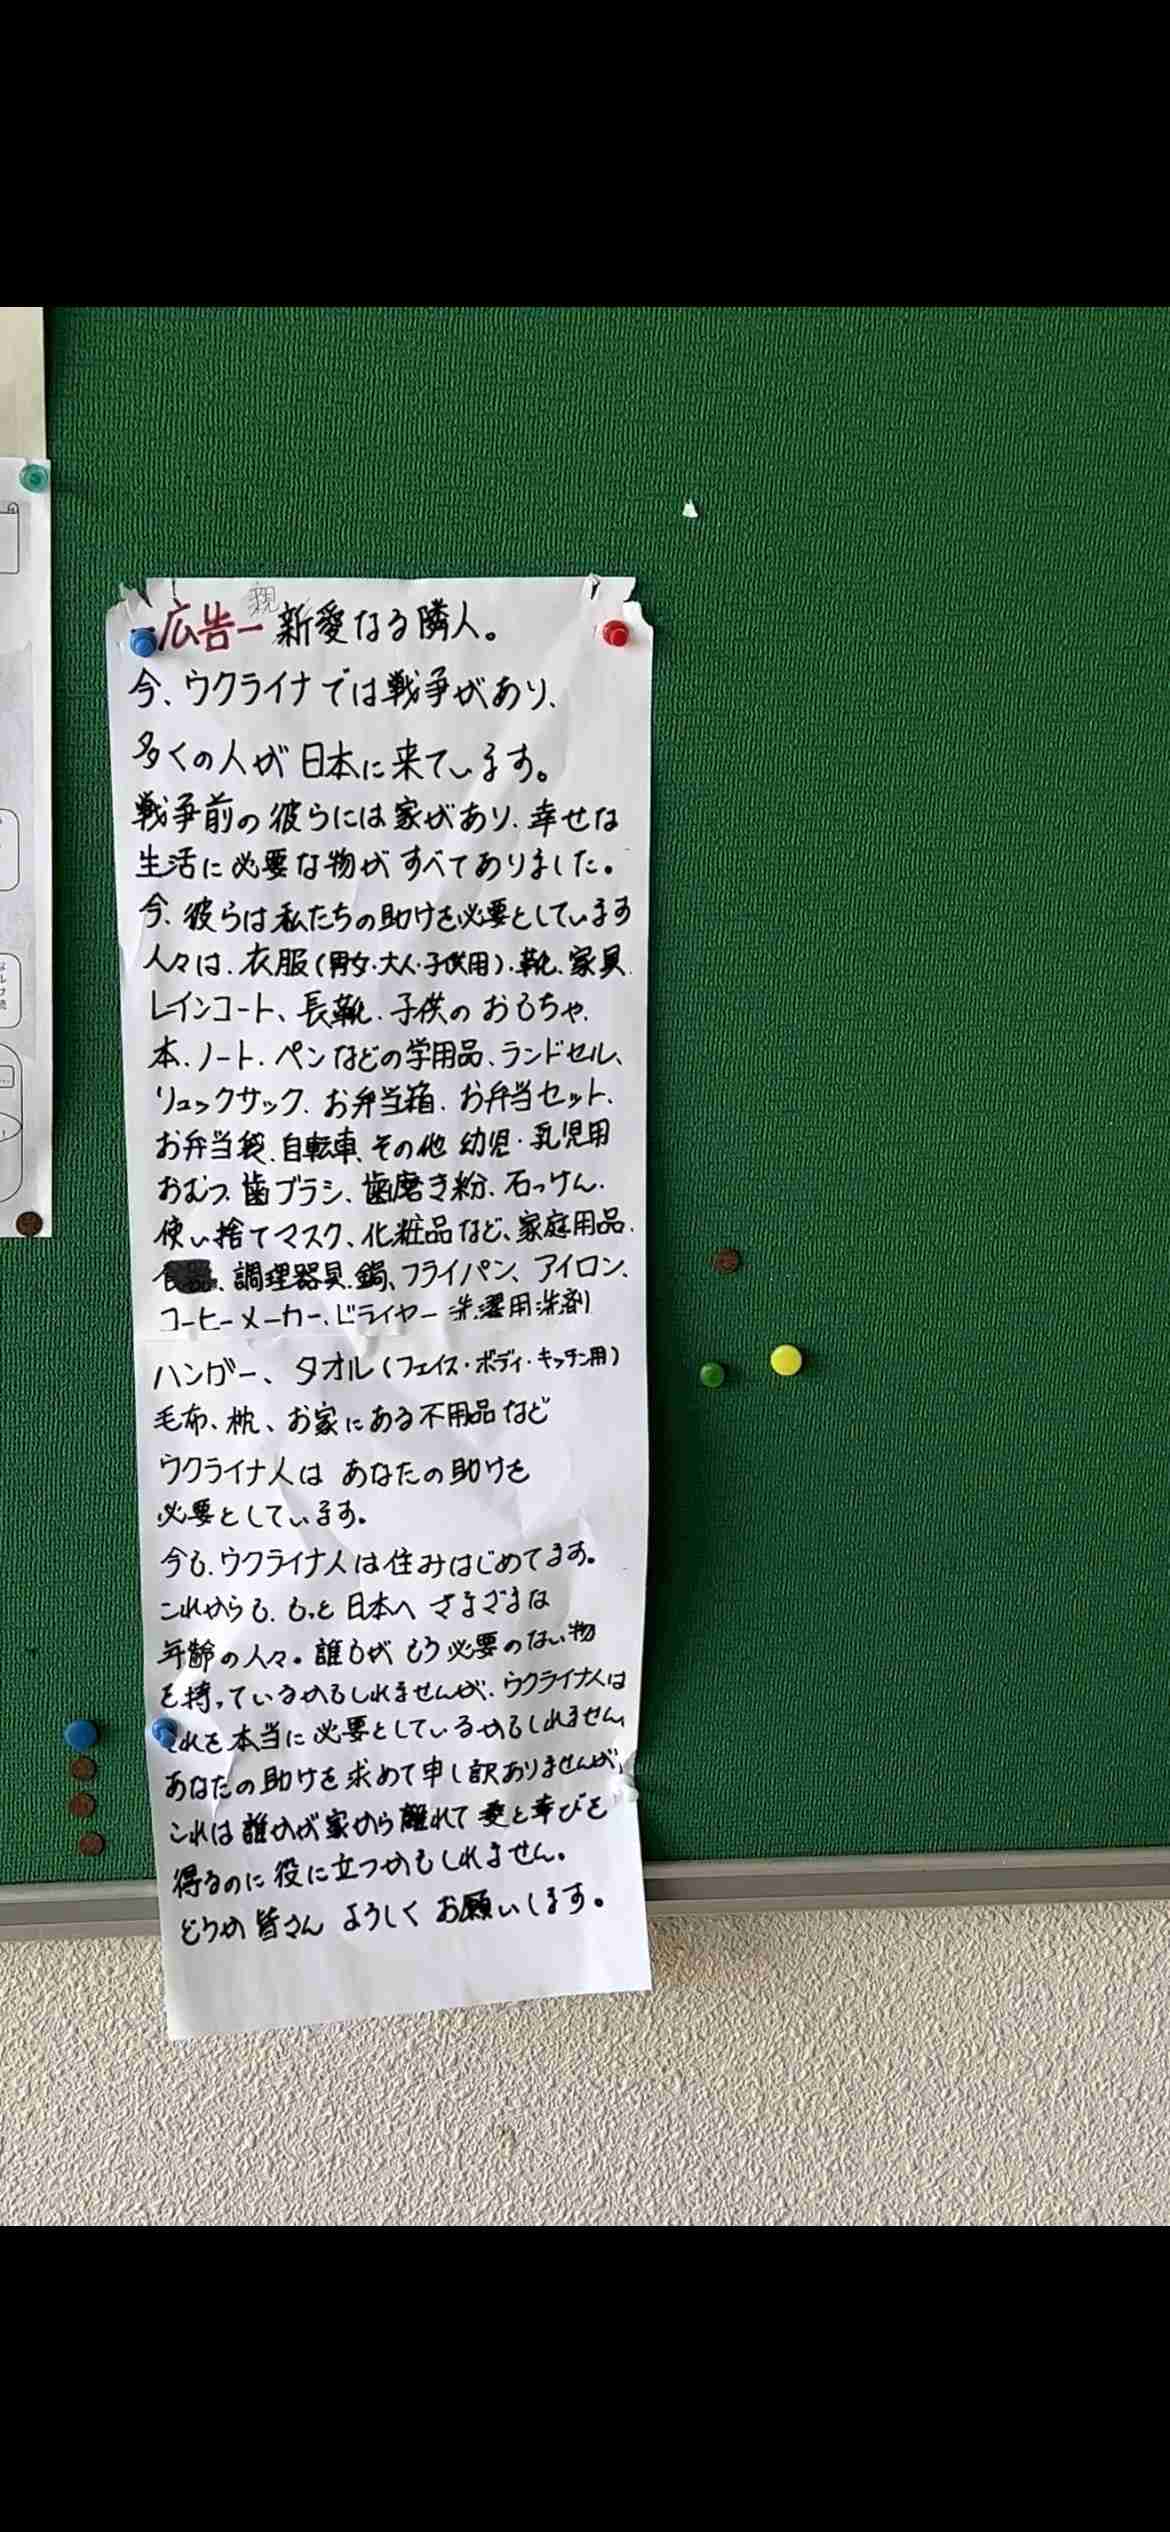 親
-広告- 新愛なる隣人。
今、ウクライナでは戦争があり、
多くの人が日本に来ています。
戦争前の彼らには家があり、幸せな
生活に必要な物がすべてありました。
今、彼らは私たちの助けを必要としています
人々は、衣服(男女・大人・子供用)、靴、家具、
レインコート、長靴、子供のおもちゃ、
本、ノート、ペンなどの学用品、ランドセル、
リュックサック、お弁当箱、お弁当セット、
お弁当袋、自転車、その他 幼児・乳児用
おむつ、歯ブラシ、歯磨き粉、石っけん、
使い捨てマスク、化粧品など、家庭用品、
食器、調理器具、鍋、フライパン、アイロン、
コーヒーメーカー、ドライヤー 洗濯用洗剤
ハンガー、タオル(フェイス・ボディ・キッチン用)
毛布、枕、お家にある不用品など
ウクライナ人は あなたの助けを
必要としています。
今も、ウクライナ人は住みはじめてます。
これからも、もっと日本へ さまざまな
年齢の人々。誰もが もう必要のない物
を持っているかもしれませんが、ウクライナ人は
それを本当に必要としているかもしれません
あなたの助けを求めて申し訳ありませんが、
これは誰かが家から離れて愛と幸びを
得るのに役に立つかもしれません。
どうか皆さん ようしくお願いします。